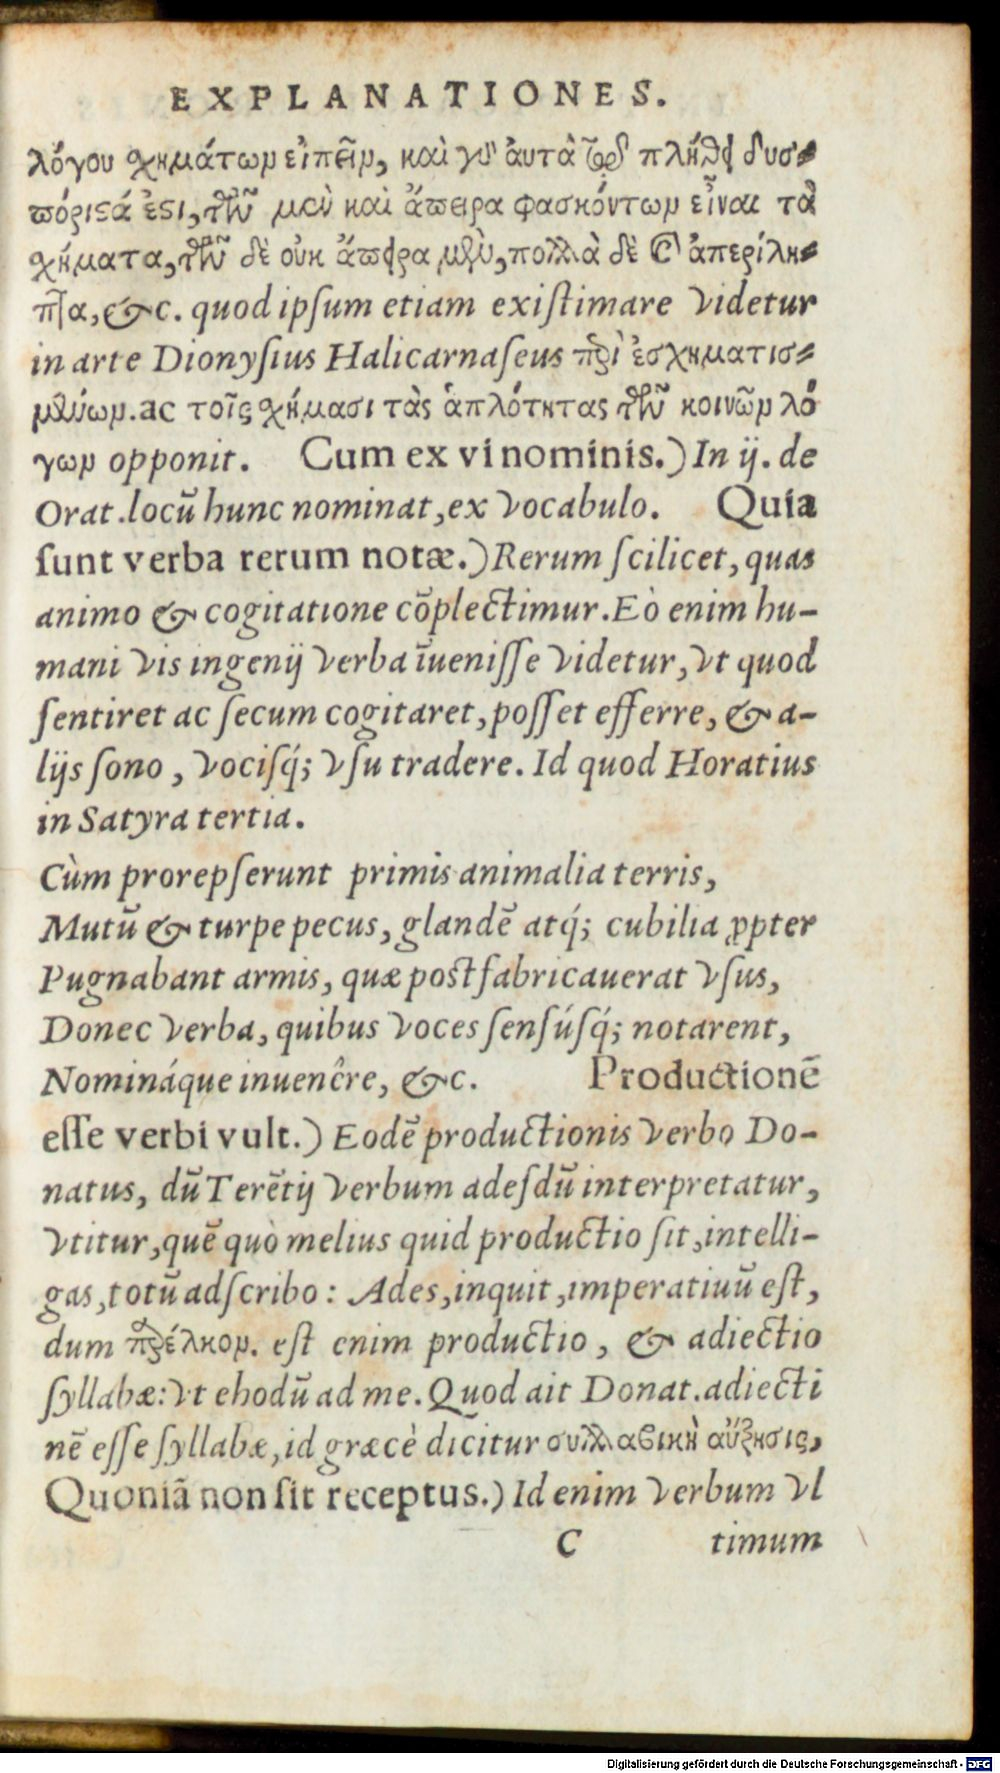 EXPLANATIONES.
λόγου χημάτων εἰπεῖν, καὶ γὰρ ἀυτὰ πλήθει δυσ-
πόριστά ἐστι, τῶν μὲν καὶ ἄπειρα φασκόντων εἶναι τὰ
χήματα, τῶν δὲ οὐκ ἄπειρα μὲν, πολλὰ δὲ καὶ ἀπερίλη-
πτα, &c. quod ipſum etiam exiſtimare videtur
in arte Dionyſius Halicarnaſeus περὶ ἐσχηματισ-
μένων. ac τοῖς χήμασι τὰς ἁπλότητας τῶν κοινῶν λό
γων opponit. Cum ex vi nominis.) In ij. de
Orat. locū hunc nominat, ex vocabulo. Quia
ſunt verba rerum notæ.) Rerum ſcilicet, quas
animo & cogitatione cōplectimur. Eò enim hu-
mani vis ingenij verba īueniſſe videtur, vt quod
ſentiret ac ſecum cogitaret, poſſet efferre, & a-
lijs ſono, vociſq́; vſu tradere. Id quod Horatius
in Satyra tertia.
Cùm prorepſerunt primis animalia terris,
Mutū & turpe pecus, glandē atq́; cubilia ꝓpter
Pugnabant armis, quæ poſt fabricauerat vſus,
Donec verba, quibus voces ſenſúſq́; notarent,
Nomináque inuenêre, &c. Productionē
eſſe verbi vult.) Eodē productionis verbo Do-
natus, dū Terētij verbum adeſdū interpretatur,
vtitur, quē quò melius quid productio ſit, intelli-
gas, totū adſcribo: Ades, inquit, imperatiuū eſt,
dum παρέλκον. eſt enim productio, & adiectio
ſyllabæ: vt ehodū ad me. Quod ait Donat. adiecti
nē eſſe ſyllabæ, id græcè dicitur συλλαβικὴ αὔξησις,
Quoniā non ſit receptus.) Id enim verbum vl
C timum
Digitalisierung gefördert durch die Deutsche Forschungsgemeinschaft - DFG